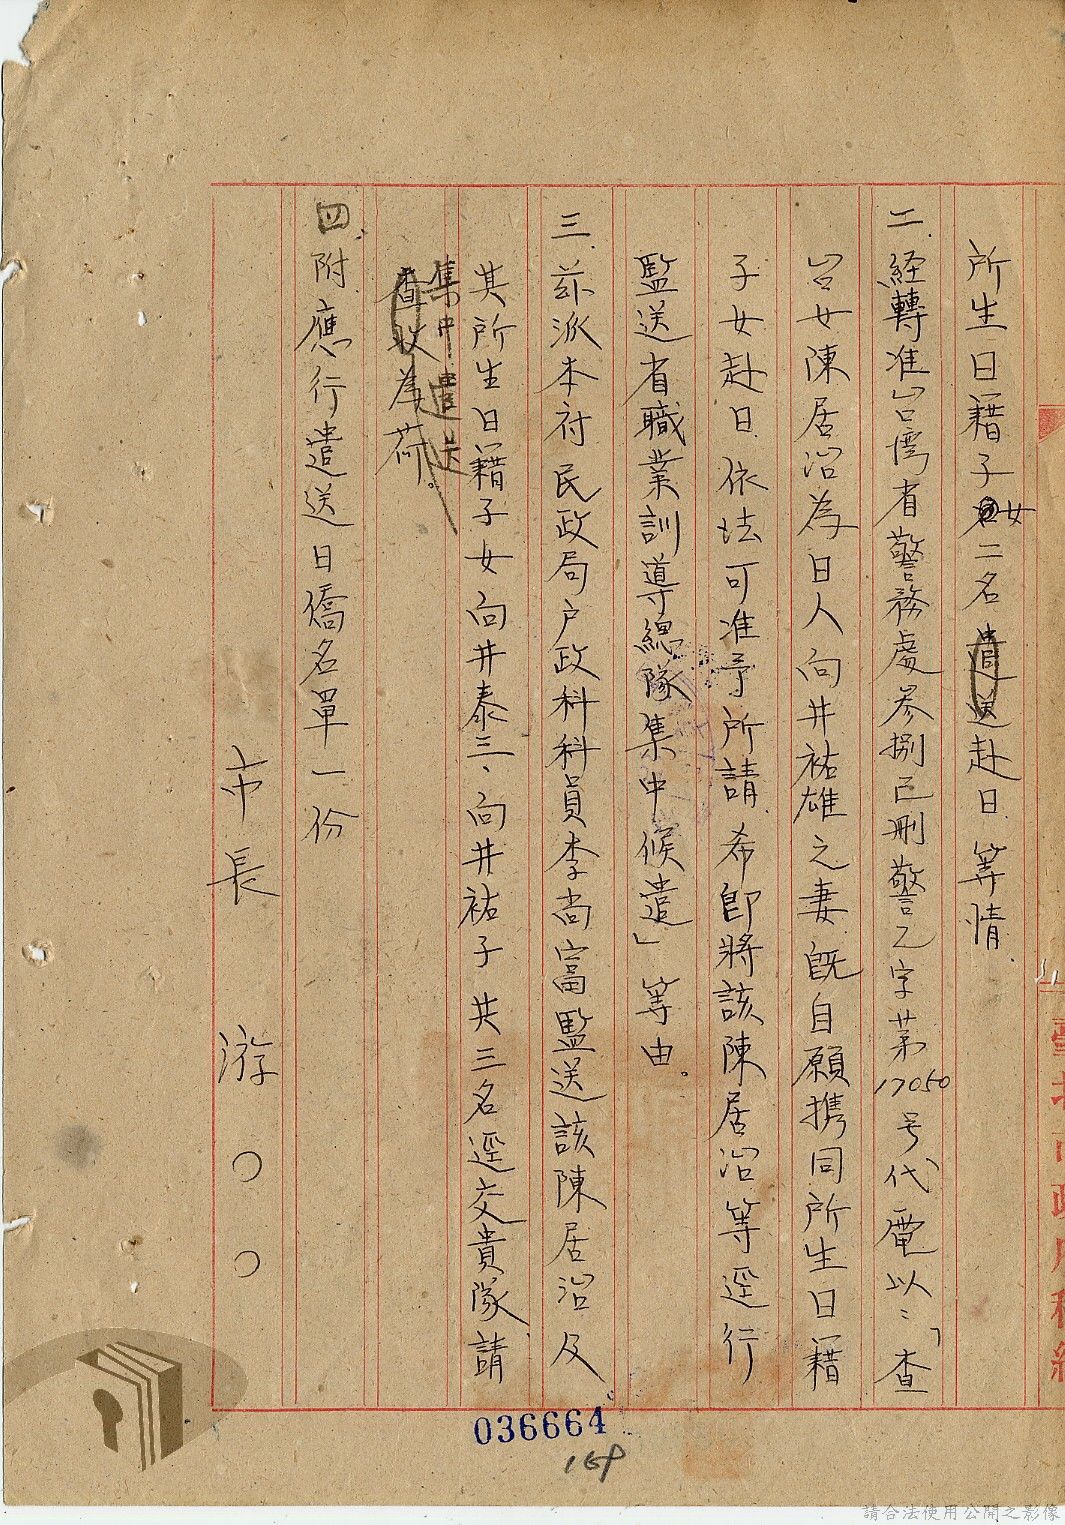 所生日籍子女二名遣送赴日等情.
二.経轉准台湾省警務處叁捌已刪警乙字苐17050号代電以:「查
台女陳居治為日人向井祐雄之妻既自願携同所生日籍
子女赴日依法可准予所請.希即將該陳居治等逕行
監送省職業訓導總隊集中候遣」等由。
三.茲派本府民政局户政科科員李尚富監送該陳居治及
其所生日籍子女向井泰三、向井祐子共三名逕交貴隊請
集中遣送
查收為荷。
四.附應行遣送日僑名單一份
市長 游○○
036664
169
請合法使用公開之影像